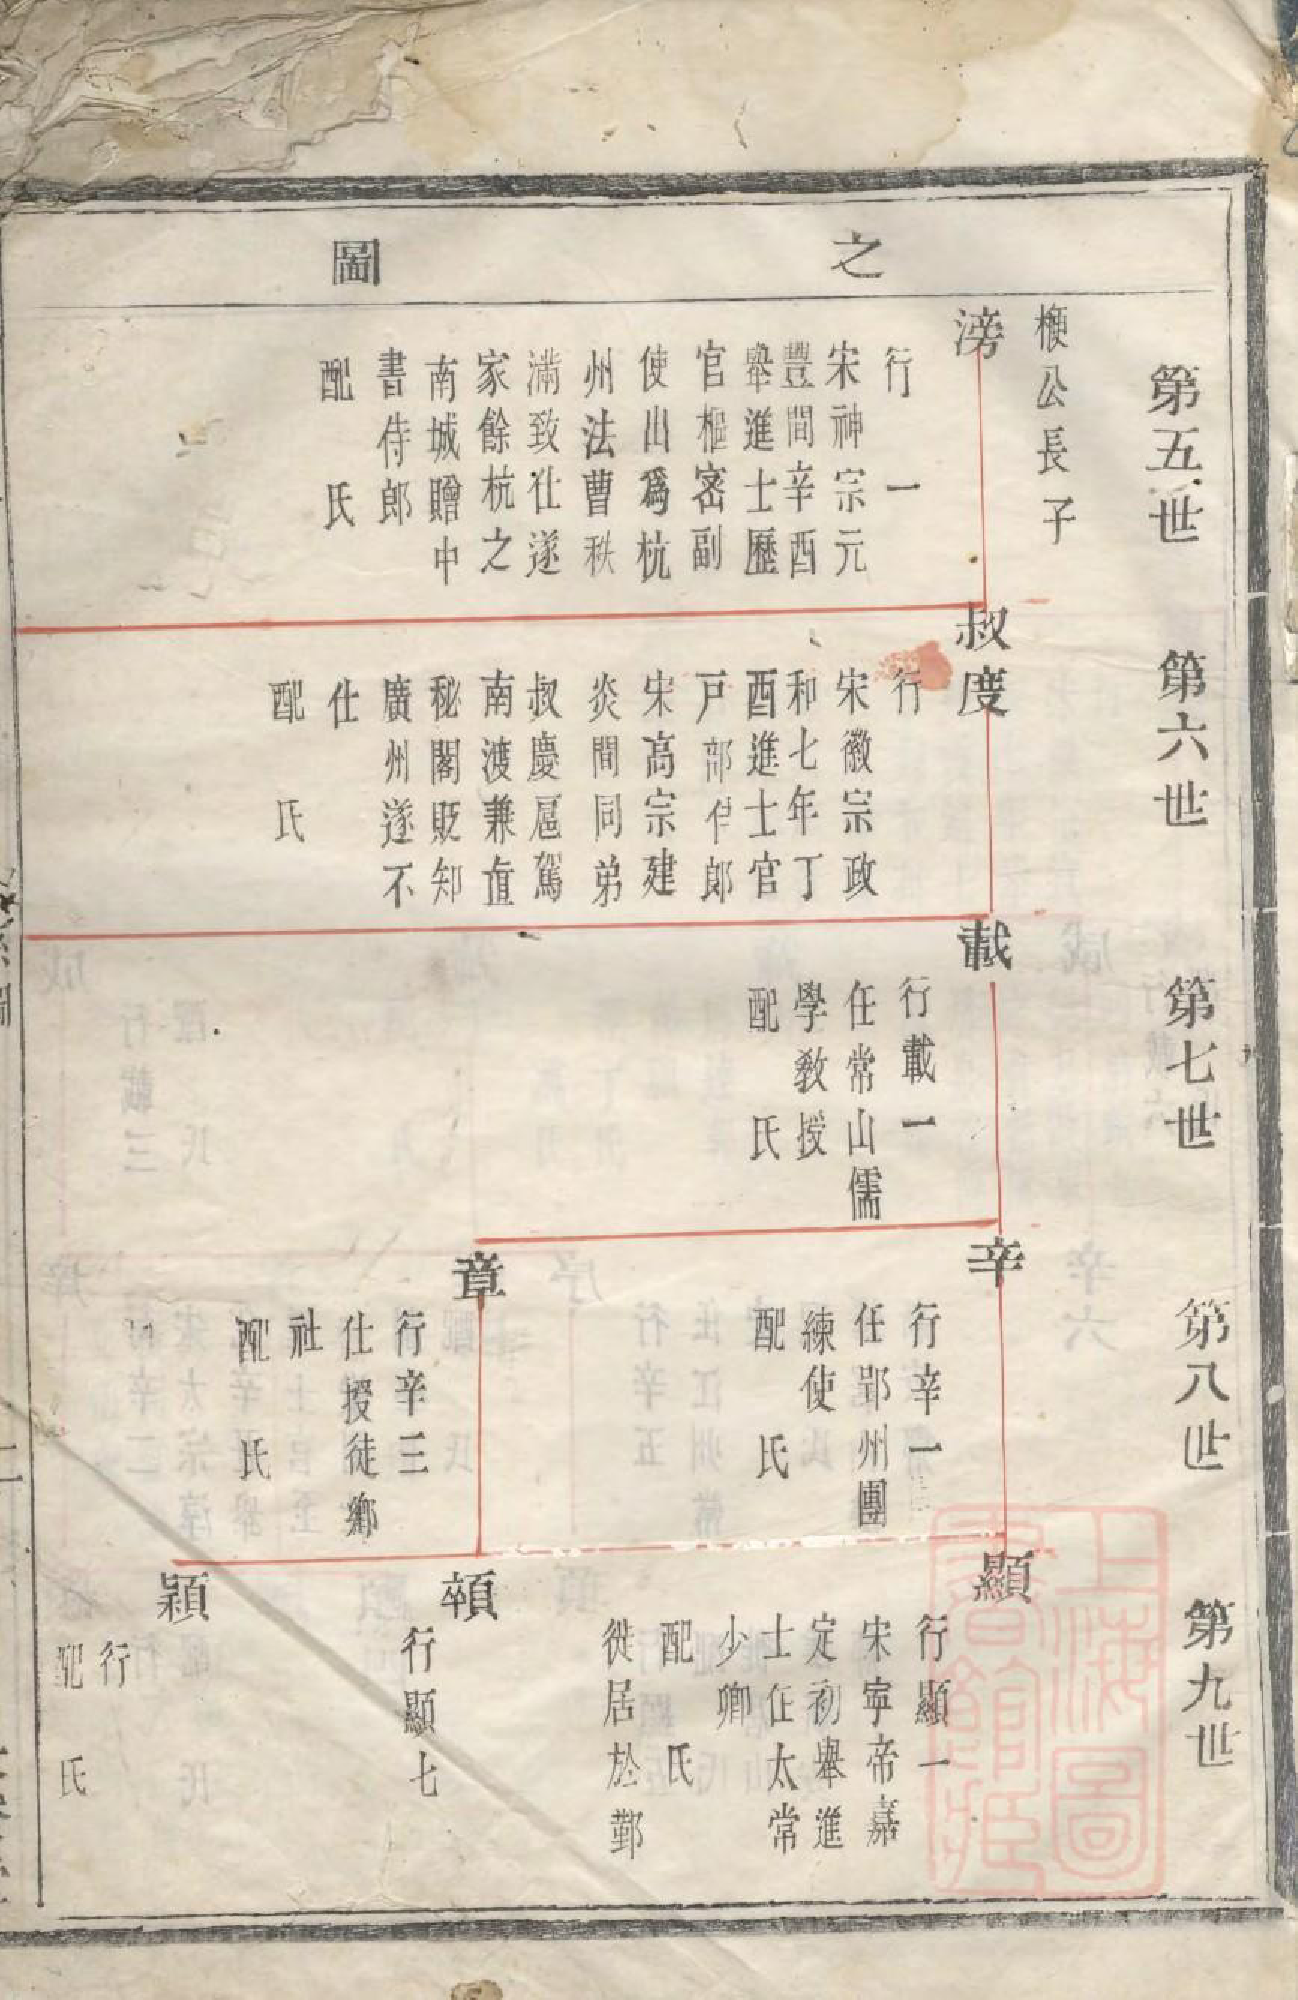 之圖
第五世
楩公長子
滂
行一
宋神宗元
豐間辛酉
舉進士歷
官樞密副
使出爲杭
州法曹秩
滿致仕遂
家餘杭之
南城贈中
書侍郎
配氏
第六世
叔度
行
宋徽宗政
和七年丁
酉進士官
戸部侍郎
宋高宗建
炎間同弟
叔慶扈駕
南渡兼直
秘閣貶知
廣州遂不
仕
配氏
第七世
載
行載一
任常山儒
學敎授
配氏
第八世
辛
行辛一
任郢州團
練使
配氏
章
行辛三
仕授徒鄉
社
配氏
第九世
顯
行顯一
宋寧帝嘉
定初舉進
士任太常
少卿
配氏
徙居於鄞
顇
行顯七
穎
行
配氏
上海圖書館藏